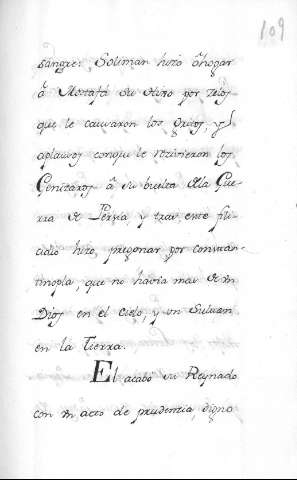 109
sangre; Soliman hizo ahogar
â Mostafâ su por zelos
que le causaron los gritos, y
aplausos conque le recivieron los
Genizaros â su buelta de la Gue-
rra de Persia y tras este fili-
cidio hizo, pregonar por constan-
tinopla, que no havia mas de un
Dios en el cielo, y un Sultan
en la Tierra.
El acabó su Reynado
con un acto de prudentia, digno